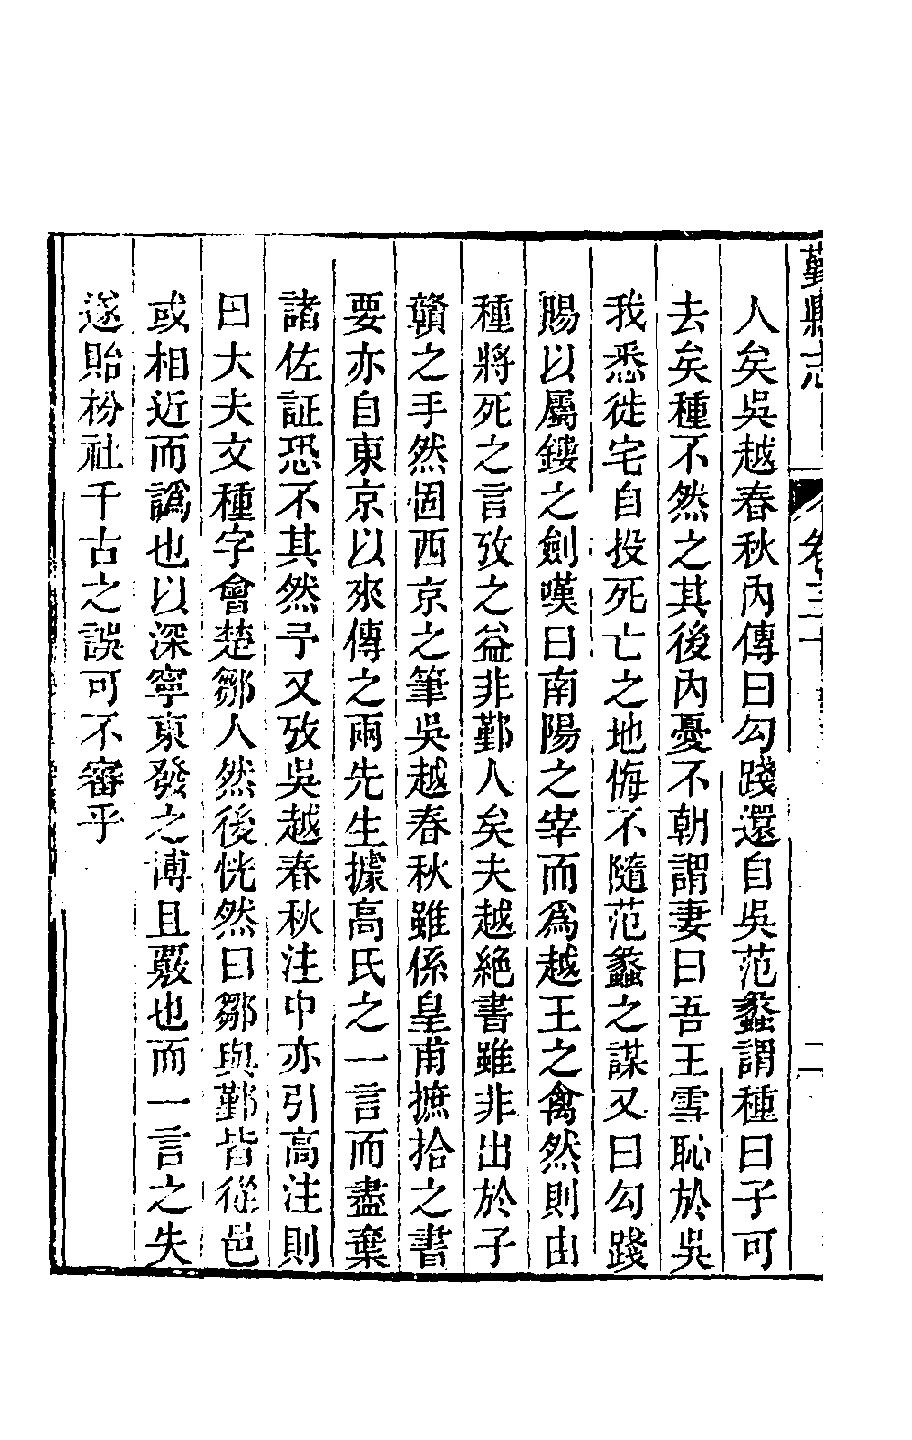 鄞縣志
卷三十
二
人矣吳越春秋內傳曰勾踐還自吳范蠡謂種曰子可
去矣種不然之其後內憂不朝謂妻曰吾王雪恥於吳
我悉徙宅自投死亡之地悔不隨范蠡之謀又曰勾踐
賜以屬鏤之劍嘆曰南陽之宰而爲越王之禽然則由
種將死之言攷之益非鄞人矣夫越絕書雖非出於子
贛之手然固西京之筆吳越春秋雖係皇甫摭拾之書
要亦自東京以來傳之兩先生據高氏之一言而盡棄
諸佐証恐不其然予又攷吳越春秋注中亦引高注則
曰大夫文種字會楚鄒人然後恍然曰鄒與鄞皆從邑
或相近而譌也以深寧東發之博且覈也而一言之失
遂貽枌社千古之誤可不審乎